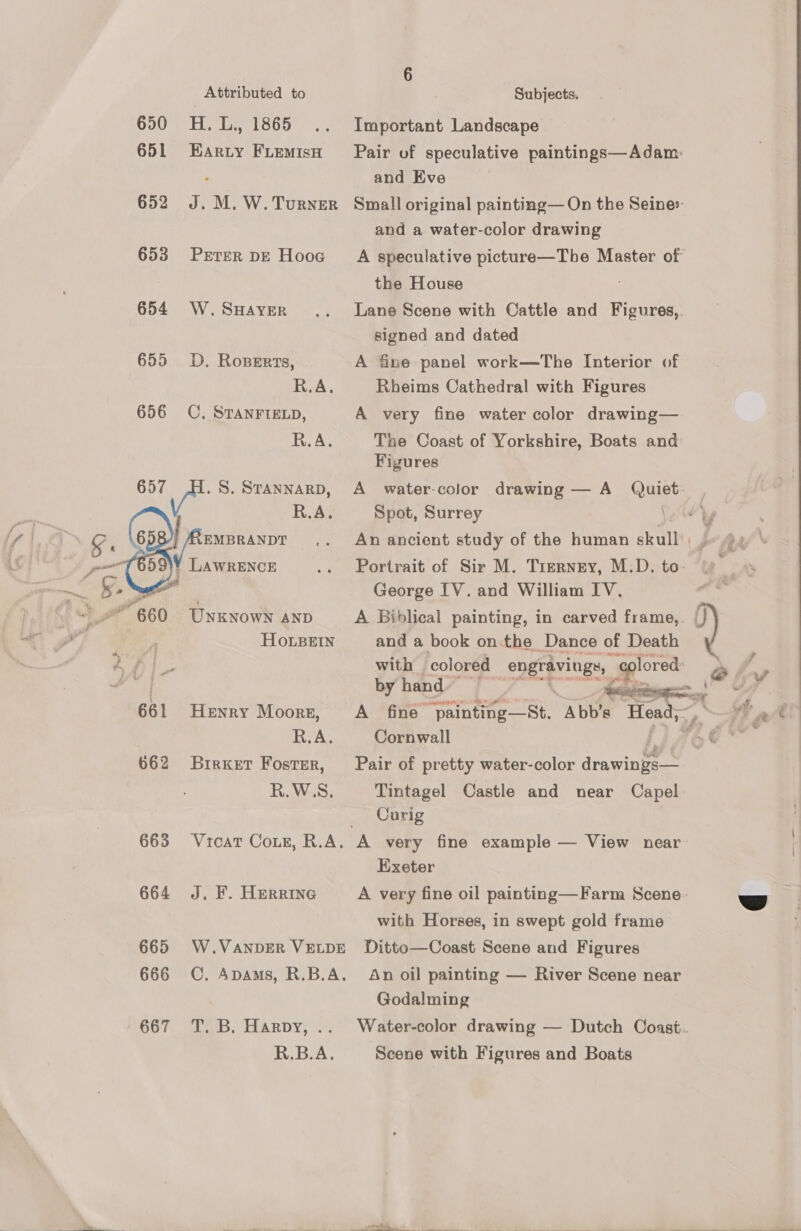 6
Attributed to Subjects.
650 H. L., 1865 .. Important Landscape
651 EARLY FLEMISH Pair of speculative paintings—Adam
and Eve
652 J. M. W. TURNER Small original painting—On the Seine
and a water-color drawing
653 PETER DE HOOG A speculative picture—The Master of
the House
654 W. SHAYER .. Lane Scene with Cattle and Figures,
signed and dated
655 D. ROBERTS, A fine panel work—The Interior of
R.A. Rheims Cathedral with Figures
656 C. STANFIELD, A very fine water color drawing—
R.A. The Coast of Yorkshire, Boats and
Figures
657 H. S. STANNARD, A water-color drawing — A Quiet
R.A. Spot, Surrey
658 REMBRANDT .. An ancient study of the human skull
659 LAWRENCE .. Portrait of Sir M. TIERNEY, M.D. to
George IV. and William IV.
660 UNKNOWN AND A Biblical painting, in carved frame,
HOLBEIN and a book on the Dance of Death
with colored engravings, colored
by hand
661 HENRY MOORE, A fine painting—St. Abb's Head,
R.A. Cornwall
662 BIRKET FOSTER, Pair of pretty water-color drawings—
R.W.S. Tintagel Castle and near Capel
Curig
663 VICAT COLE, R.A. A very fine example — View near
Exeter
664 J. F. HERRING A very fine oil painting—Farm Scene
with Horses, in swept gold frame
665 W. VANDER VELDE Ditto—Coast Scene and Figures
666 C. ADAMS, R.B.A. An oil painting — River Scene near
Godalming
667 T. B. HARDY, .. Water-color drawing — Dutch Coast
R.B.A. Scene with Figures and Boats